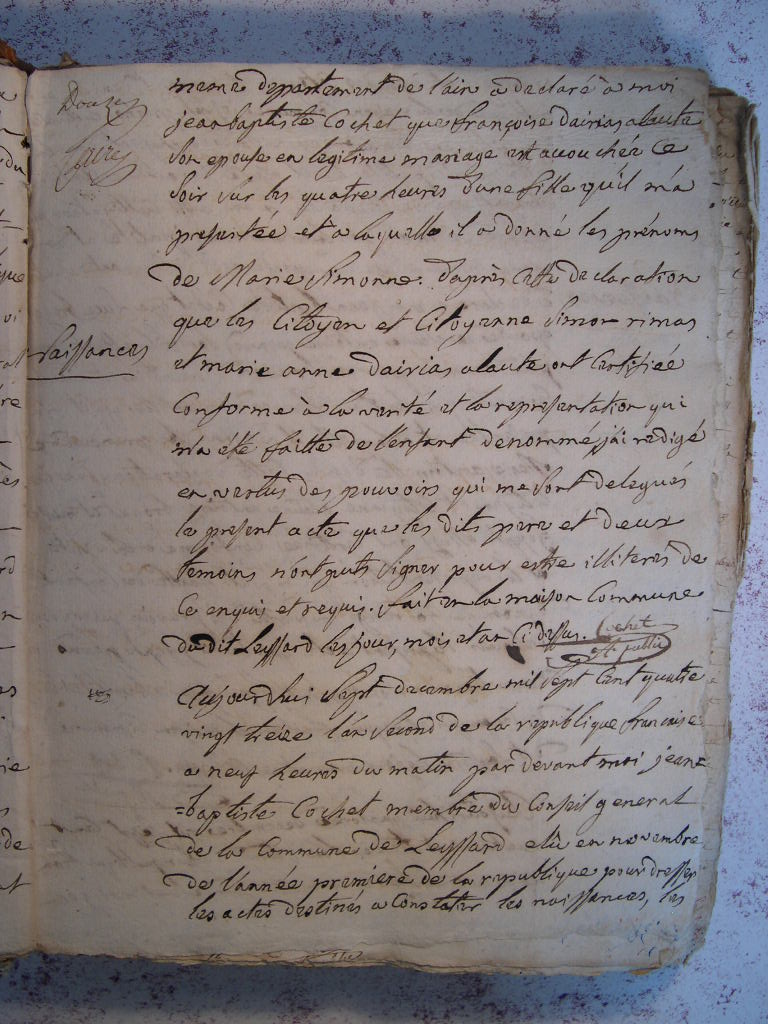 meme departement de l'ain a declaré a moi
jean baptiste Cochet que françoise dairias alaute
son epouse en legitime mariage est accouchéz Ce
soir sur les quatre heures d'une fille qu'il m'a
presentée et a laquelle il a donné les prénoms
de Marie Simonne. d'après cette declaration
que les Citoyen et Citoyenne Simon rimas
Naissances
et marie anne dairias alaute ont Certifiée
Conforme à la verité et la representation qui
m'a été faitte de l'enfant denommé, j'ai redigé
en vertus des pouvoirs qui me sont delegués
le present acte que les dits pere et deux
temoins n'ont puts signer pour estre illiteres de
Ce enquis et requis. fait en la maison Commune
du dit Leyssard les jour, mois et an Ci dessus. Cochet
off. public
aujourdhui sept decembre mil sept Cent quatre
vingt treize l'an second de la republique francaise
a neuf heures du matin par devant moi jean=
=baptiste Cochet membre du Conseil general
de la Commune de Leyssard elu en novembre
de l'année premiere de la republique pour dresser
les actes destinés a Constater les naissances, les